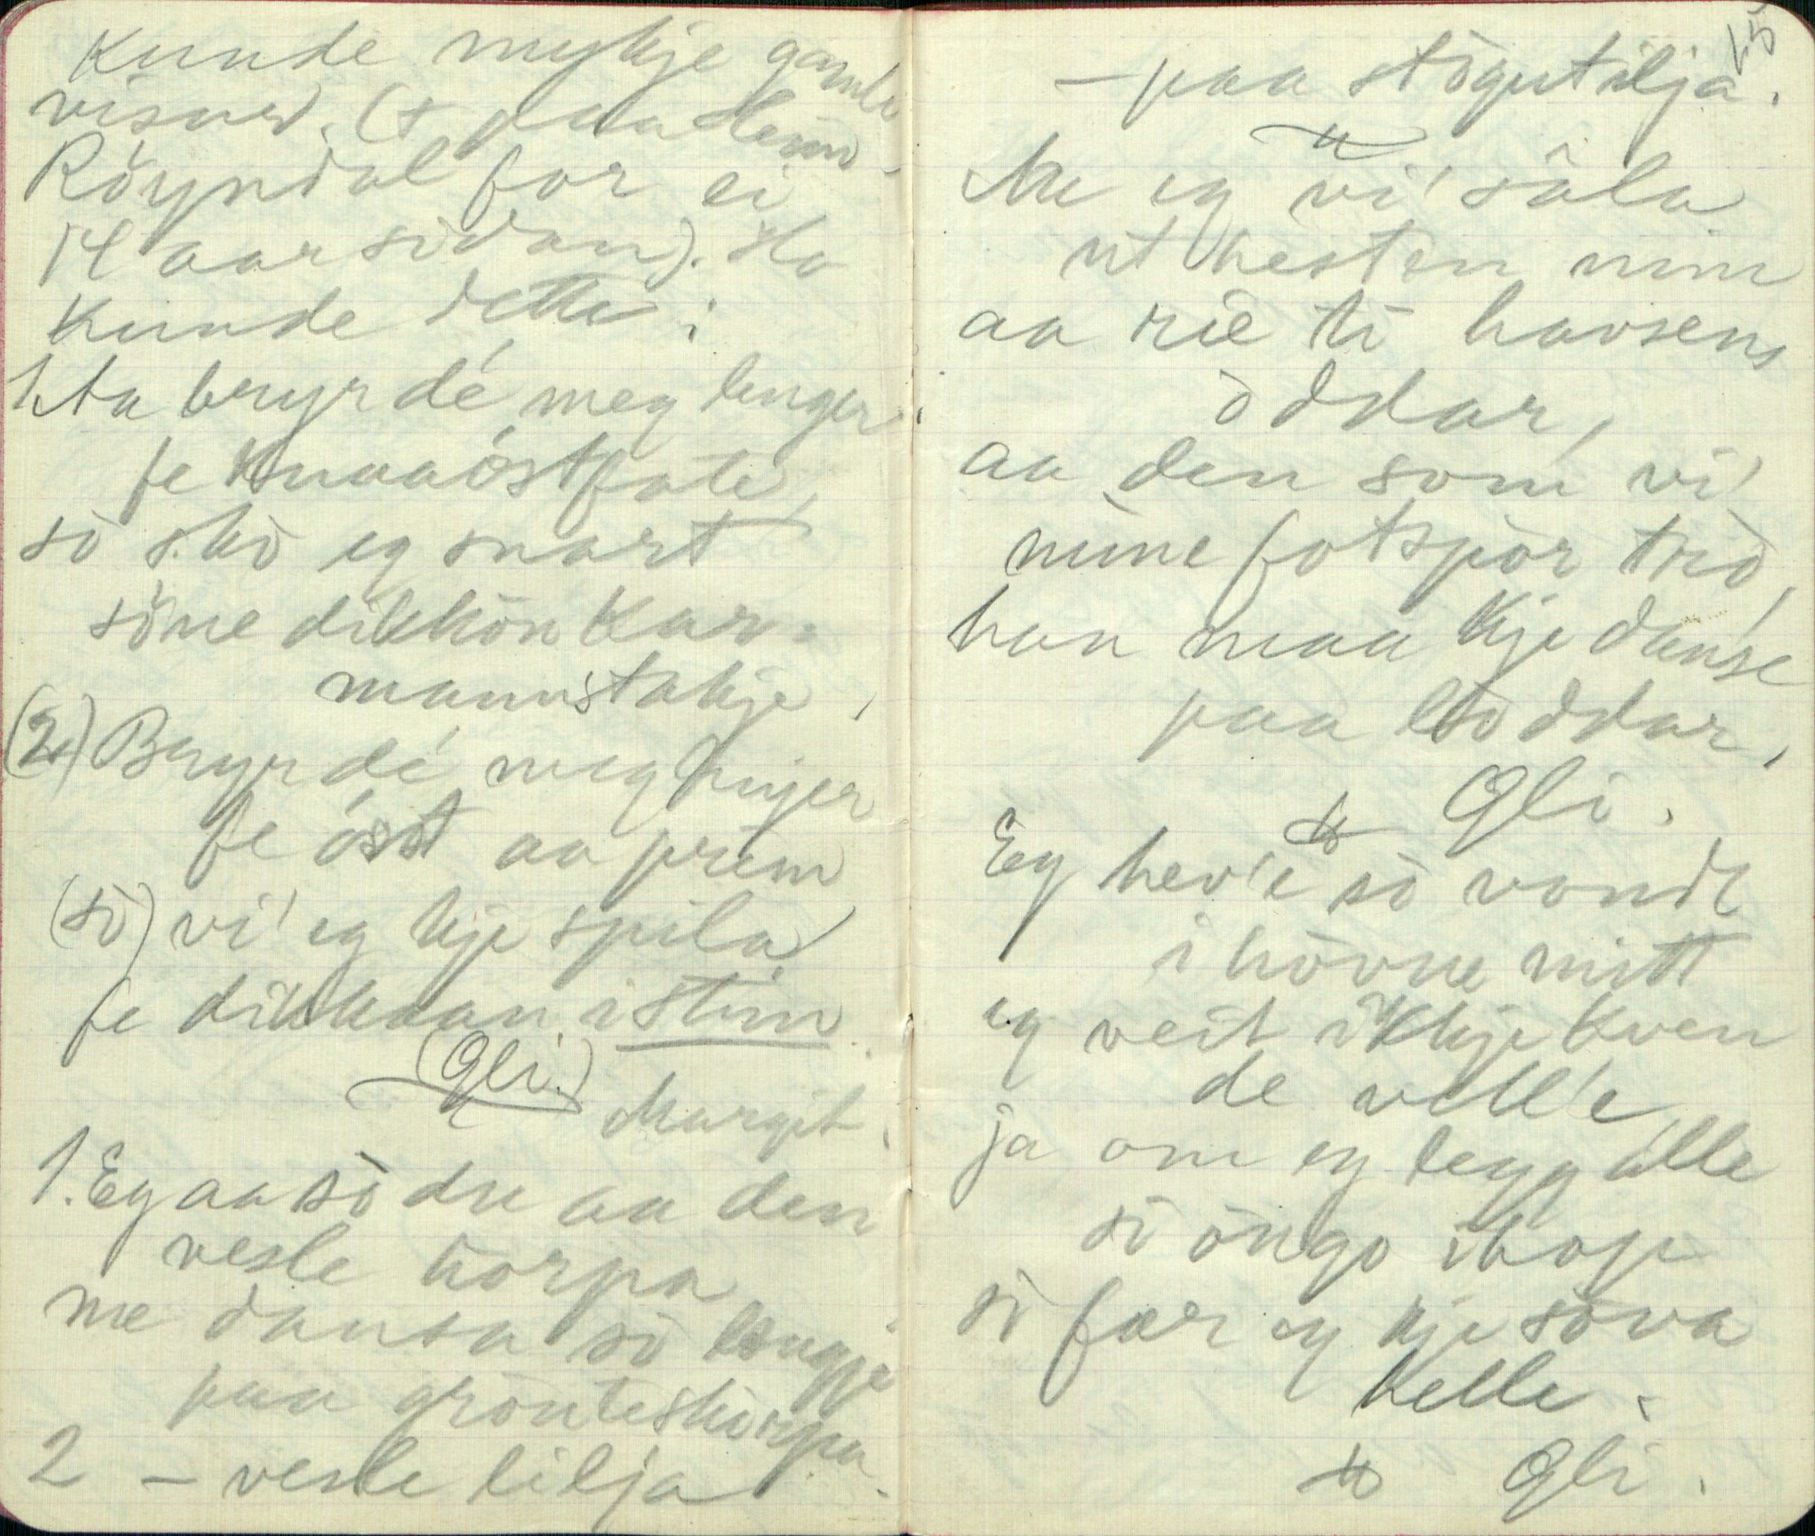 kunde mykje gamle
visur. (+ paa Heim
Röyndal for ei
14 aar sidan). Ho
kunde dette:
1. Aa bryr dé meg lenger
fe knaaóstfate,
so sko eg snart
söme dikkòn kar-
mannstakje,
(2.) Bryr dé meg finger
fe óst aa prim
(sò) vi' eg kje spila
fe dikkaan i stim.
(Gli.)
Margit.
1. Eg aa sò du aa den
vesle torpa
me dansa sò lengje
paa grönteskorpa.
2 – vesle lilja
45
– paa stògutilja.
Nu eg vi' sâla
ut hesten min
aa rie ti havsens
òddar,
aa den som vi'
mine fotspòr trò,
han maa kje danse
paa loddar,
Gli.
Eg hev'e sò vondt
i hòvue mitt
eg veit ikkje kven
de vell'e,
ja om eg legg alle
sò òngo ihop
sò fær eg kje sòva
kelle.
Gli.